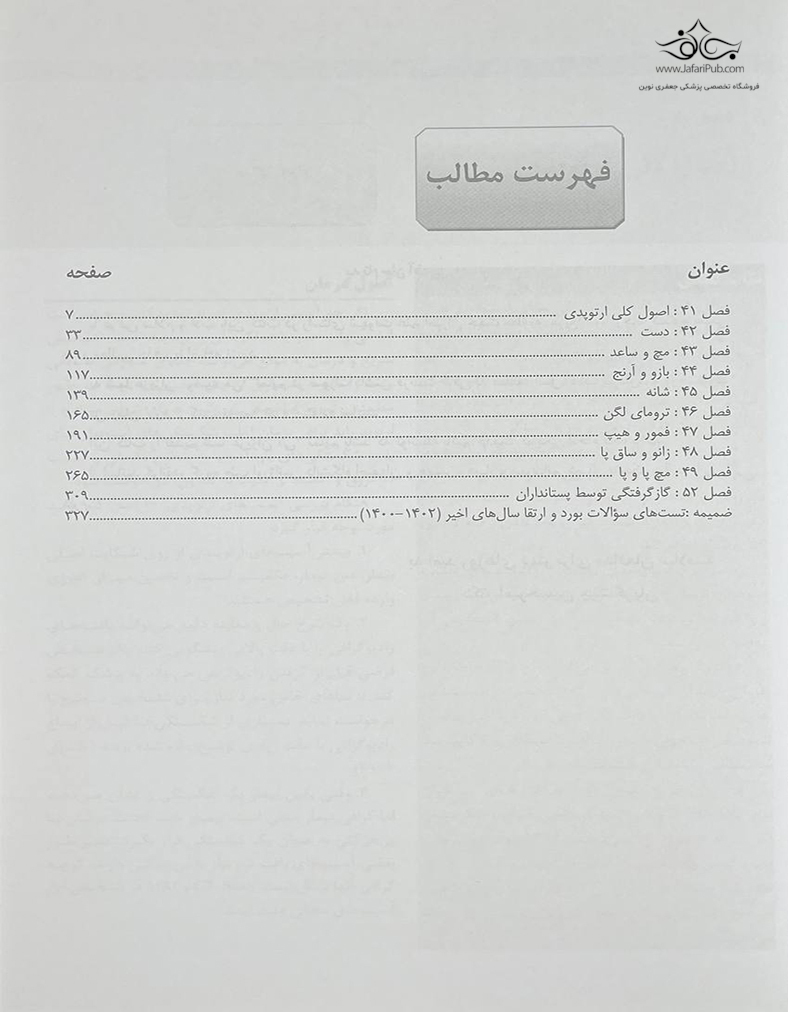 بقراط
www.JafariPub.com
فروشگاه تخصصی پزشکی جعفری نوین
فهرست مطالب
عنوان صفحه
فصل ۴۱ : اصول کلی ارتوپدی ........ ۷
فصل ۴۲ : دست ........ ۳۳
فصل ۴۳ : مچ و ساعد ........ ۸۹
فصل ۴۴ : بازو و آرنج ........ ۱۱۷
فصل ۴۵ : شانه ........ ۱۳۹
فصل ۴۶ : ترومای لگن ........ ۱۶۵
فصل ۴۷ : فمور و هیپ ........ ۱۹۱
فصل ۴۸ : زانو و ساق پا ........ ۲۲۷
فصل ۴۹ : مچ پا و پا ........ ۲۶۵
فصل ۵۲ : گازگرفتگی توسط پستانداران ........ ۳۰۹
ضمیمه :تست‌های سؤالات بورد و ارتقا سال‌های اخیر (۱۴۰۲–۱۴۰۰) ........ ۳۲۷